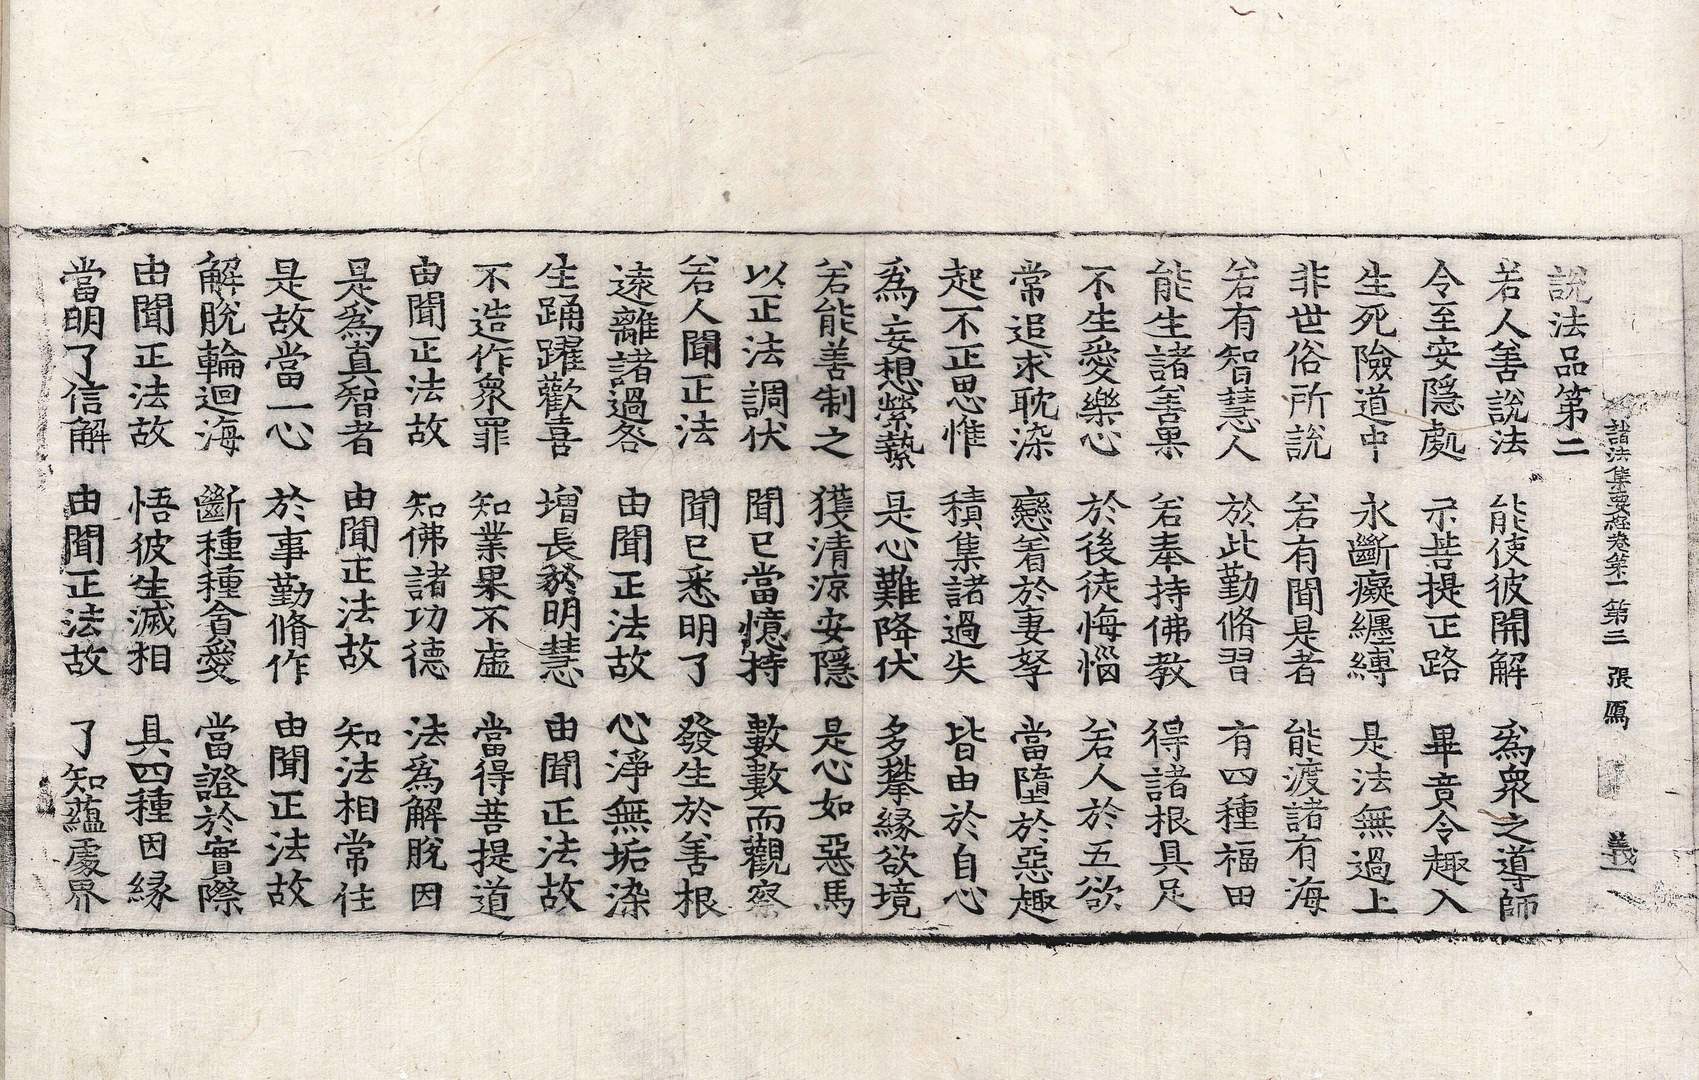 諸法集要經卷第一 第三 張 馮 義
說法品第二
若人善說法 能使彼開解 爲衆之導師
令至安隱處 示菩提正路 畢竟令趣入
生死險道中 永斷癡纏縛 是法無過上
非世俗所說 若有聞是者 能渡諸有海
若有智慧人 於此勤脩習 有四種福田
能生諸善果 若奉持佛教 得諸根具足
不生愛樂心 於後徒悔惱 若人於五欲
常追求耽染 戀着於妻孥 當墮於惡趣
起不正思惟 積集諸過失 皆由於自心
爲妄想縈縶 是心難降伏 多攀緣欲境
若能善制之 獲清涼安隱 是心如惡馬
以正法調伏 聞已當憶持 數數而觀察
若人聞正法 聞已悉明了 發生於善根
遠離諸過咎 由聞正法故 心淨無垢染
生踊躍歡喜 增長於明慧 由聞正法故
不造作衆罪 知業果不虛 當得菩提道
由聞正法故 知佛諸功德 法爲解脫因
是爲真智者 由聞正法故 知法相常住
是故當一心 於事勤脩作 由聞正法故
解脫輪迴海 斷種種貪愛 當證於實際
由聞正法故 悟彼生滅相 具四種因緣
當明了信解 由聞正法故 了知蘊處界